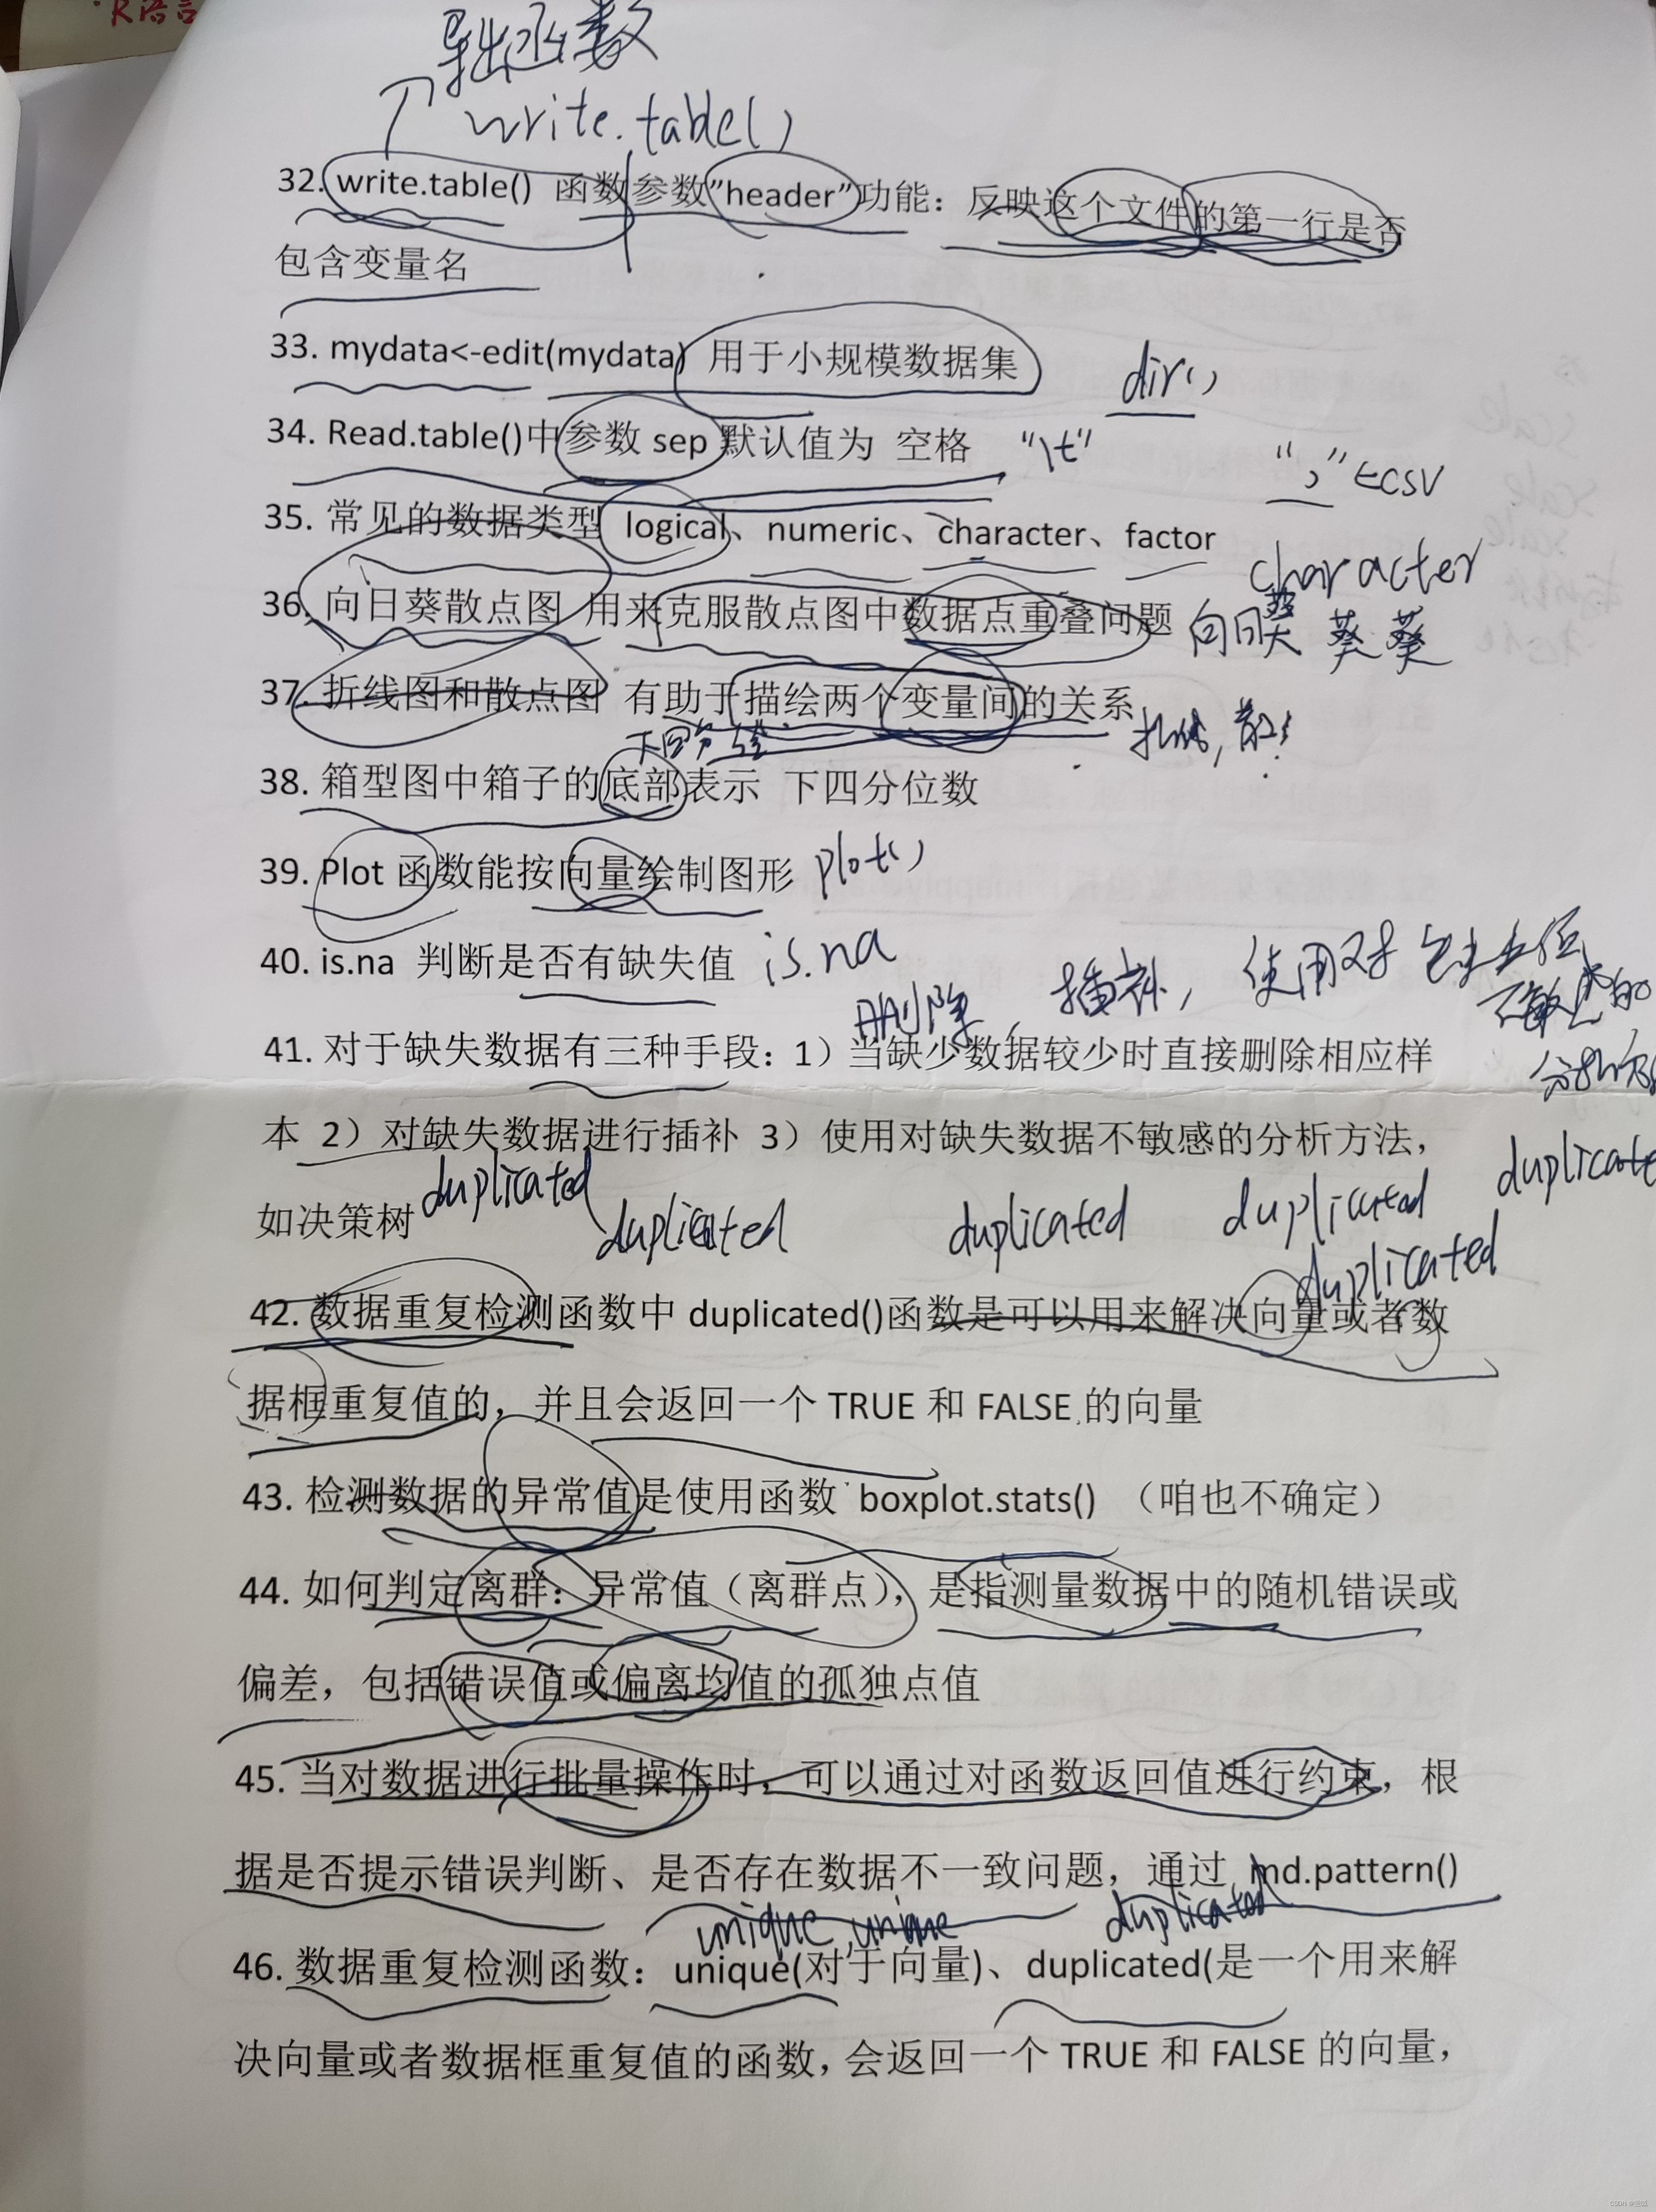 R语言
导出函数
write.table()
32. write.table() 函数参数”header”功能：反映这个文件的第一行是否
包含变量名
33. mydata<-edit(mydata) 用于小规模数据集
dir()
34. Read.table()中参数 sep 默认值为 空格 "\t" "," ←csv
35. 常见的数据类型 logical、numeric、character、factor
character
36. 向日葵散点图 用来克服散点图中数据点重叠问题 向日葵 葵 葵
37. 折线图和散点图 有助于描绘两个变量间的关系
38. 箱型图中箱子的底部表示 下四分位数
39. Plot 函数能按向量绘制图形 plot()
40. is.na 判断是否有缺失值 is.na
删除， 插补， 使用对
不敏感的
41. 对于缺失数据有三种手段：1）当缺少数据较少时直接删除相应样
本 2）对缺失数据进行插补 3）使用对缺失数据不敏感的分析方法，
duplicated duplicated duplicated duplicated duplicate
如决策树
duplicated
42. 数据重复检测函数中 duplicated()函数是可以用来解决向量或者数
据框重复值的，并且会返回一个 TRUE 和 FALSE 的向量
43. 检测数据的异常值是使用函数 boxplot.stats() （咱也不确定）
44. 如何判定离群：异常值（离群点），是指测量数据中的随机错误或
偏差，包括错误值或偏离均值的孤独点值
45. 当对数据进行批量操作时，可以通过对函数返回值进行约束，根
据是否提示错误判断、是否存在数据不一致问题，通过 md.pattern()
unique, unique duplicated
46. 数据重复检测函数：unique(对于向量)、duplicated(是一个用来解
决向量或者数据框重复值的函数，会返回一个 TRUE 和 FALSE 的向量，